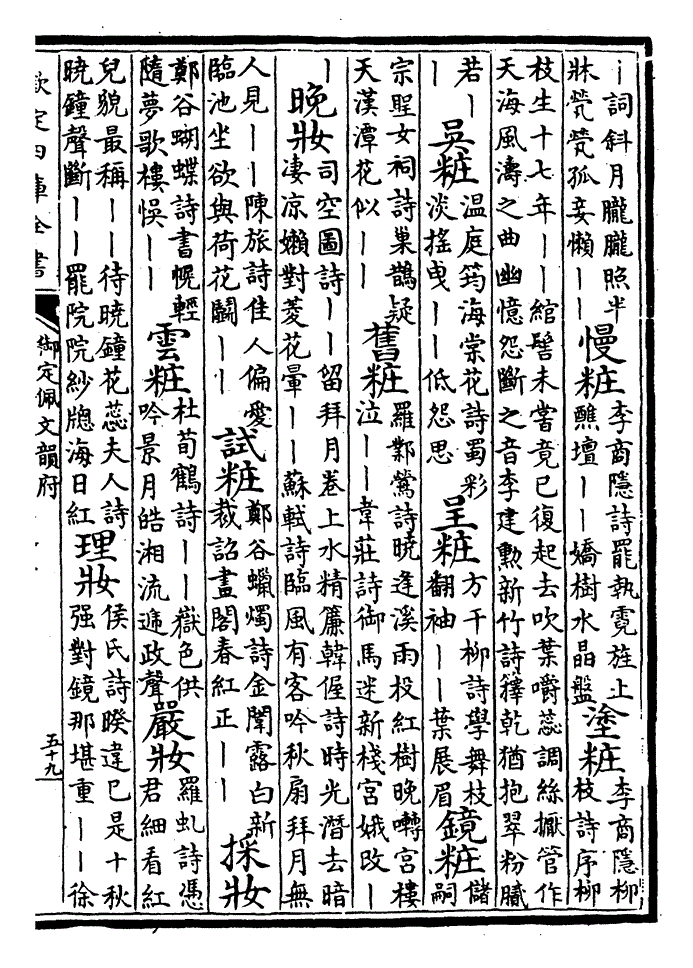 丨詞斜月朧朧照半
牀煢煢孤妾懶丨丨
慢粧
李商隱詩罷執霓旌上
醮壇丨丨嬌樹水晶盤
塗粧
李商隱柳
枝詩序柳
枝生十七年丨丨綰髻未嘗竟已復起去吹葉嚼蕊調絲擫管作
天海風濤之曲幽憶怨斷之音李建勲新竹詩籜乾猶抱翠粉膩
若丨
丨
吳粧
溫庭筠海棠花詩蜀彩
淡搖曳丨丨低怨思
呈粧
方干柳詩學舞枝
翻袖丨丨葉展眉
鏡粧
儲
嗣
宗聖女祠詩巢鵲疑
天漢潭花似丨丨
舊粧
羅鄴鶯詩曉逢溪雨投紅樹晚囀宮樓
泣丨丨韋莊詩御馬迷新棧宮娥改丨
丨
晚妝
司空圖詩丨丨留拜月卷上水精簾韓偓詩時光潛去暗
凄凉嬾對菱花暈丨丨蘇軾詩臨風有客吟秋扇拜月無
人見丨丨陳旅詩佳人偏愛
臨池坐欲與荷花鬭丨丨
試粧
鄭谷蠟燭詩金闈露白新
裁詔畫閣春紅正丨丨
採妝
鄭谷蝴蝶詩書幌輕
隨夢歌樓悞丨丨
雲粧
杜荀鶴詩丨丨嶽色供
吟景月皓湘流遞政聲
嚴妝
羅虬詩憑
君細看紅
兒貌最稱丨丨待曉鐘花蕊夫人詩
曉鐘聲斷丨丨罷院院紗牕海日紅
理妝
侯氏詩睽違已是十秋
强對鏡那堪重丨丨徐
欽定四庫全書
御定佩文韻府
五十九